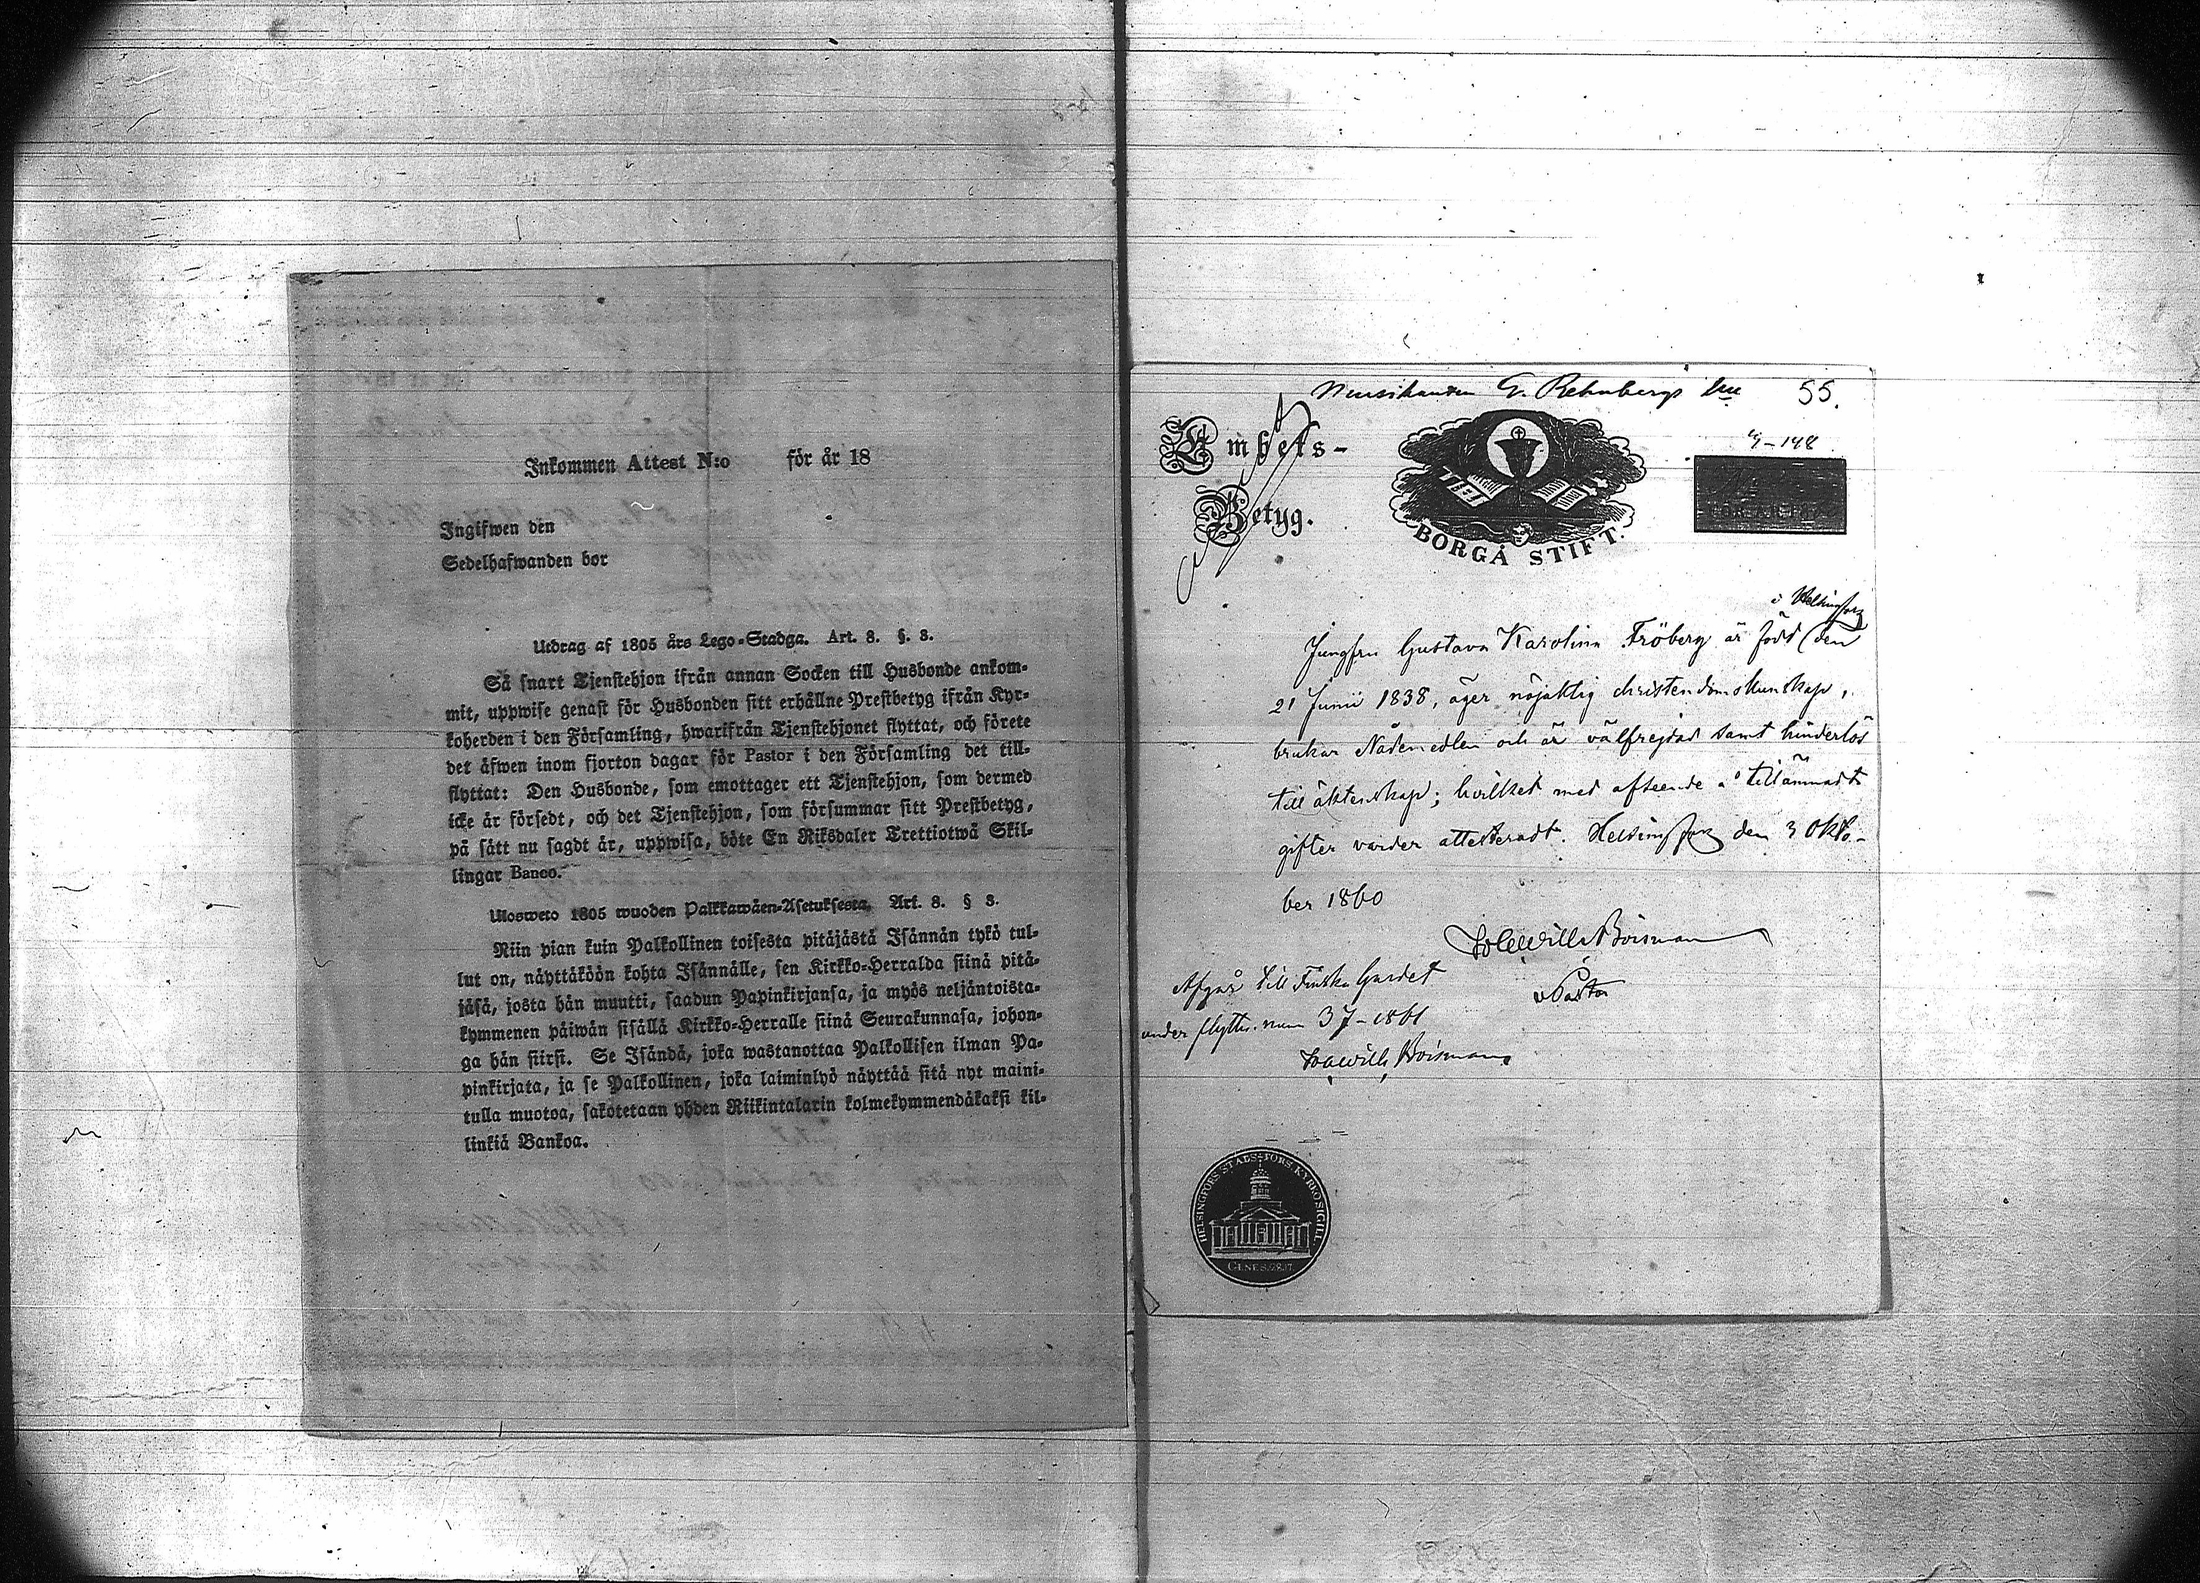 Inkommen Attest N:o för år 18
Ingifwen den
Sedelhafwanden bor
Utdrag af 1805 års Lego-Stadga. Art. 8. §. 3.
Så snart Tjenstehjon ifrån annan Socken till Husbonde ankom-
mit, uppwise genast för Husbonden sitt erhållne Prestbetyg ifrån Kyr-
koherden i den Församling, hwarifrån Tjenstehjonet flyttat, och förete
det äfwen inom fjorton dagar för Pastor i den Församling det till-
flyttat: Den Husbonde, som emottager ett Tjenstehjon, som dermed
icke är försedt, och det Tjenstehjon, som försummar sitt Prestbetyg,
på sätt nu sagdt är, uppwisa, böte En Riksdaler Trettiotwå Skil-
lingar Banco.
Ulosweto 1805 wuoden Palkkawäen-Asetuksesta. Art. 8. § 3.
Niin pian kuin Palkollinen toisesta pitäjästä Isännän tykö tul-
lut on, näyttäköön kohta Isännälle, sen Kirkko-Herralda siinä pitä-
jäsä, josta hän muutti, saadun Papinkirjansa, ja myös neljäntoista-
kymmenen päiwän sisällä Kirkko-Herralle siinä Seurakunnasa, johon-
ga hän siirsi. Se Isändä, joka wastanottaa Palkollisen ilman Pa-
pinkirjata, ja se Palkollinen, joka laiminlyö näyttää sitä nyt maini-
tulla muotoa, sakotetaan yhden Riikintalarin kolmekymmendäkaksi kil-
linkiä Bankoa.
Musikanten G. Rehnbergs 55.
Embets-
Betyg.
BORGÅ STIFT.
148
i Helsingfors
Jungfru Gustava Karolina Fröberg är född den
21 Junii 1838, äger nöjaktig christendomskunskap,
brukar Nådemedlen och är välfrejdad samt hinderlös
till äktenskap; hvilket med afseende å tillämnadt
gifter varder attesteradt. Helsingfors den 3 Okto-
ber 1860
Boisman
Pastor
Afgår till Finska Gardet
under flyttn. num 37-1861
Boisman
HELSINGFORS STADS-FÖRS. KYRKO SIGILL